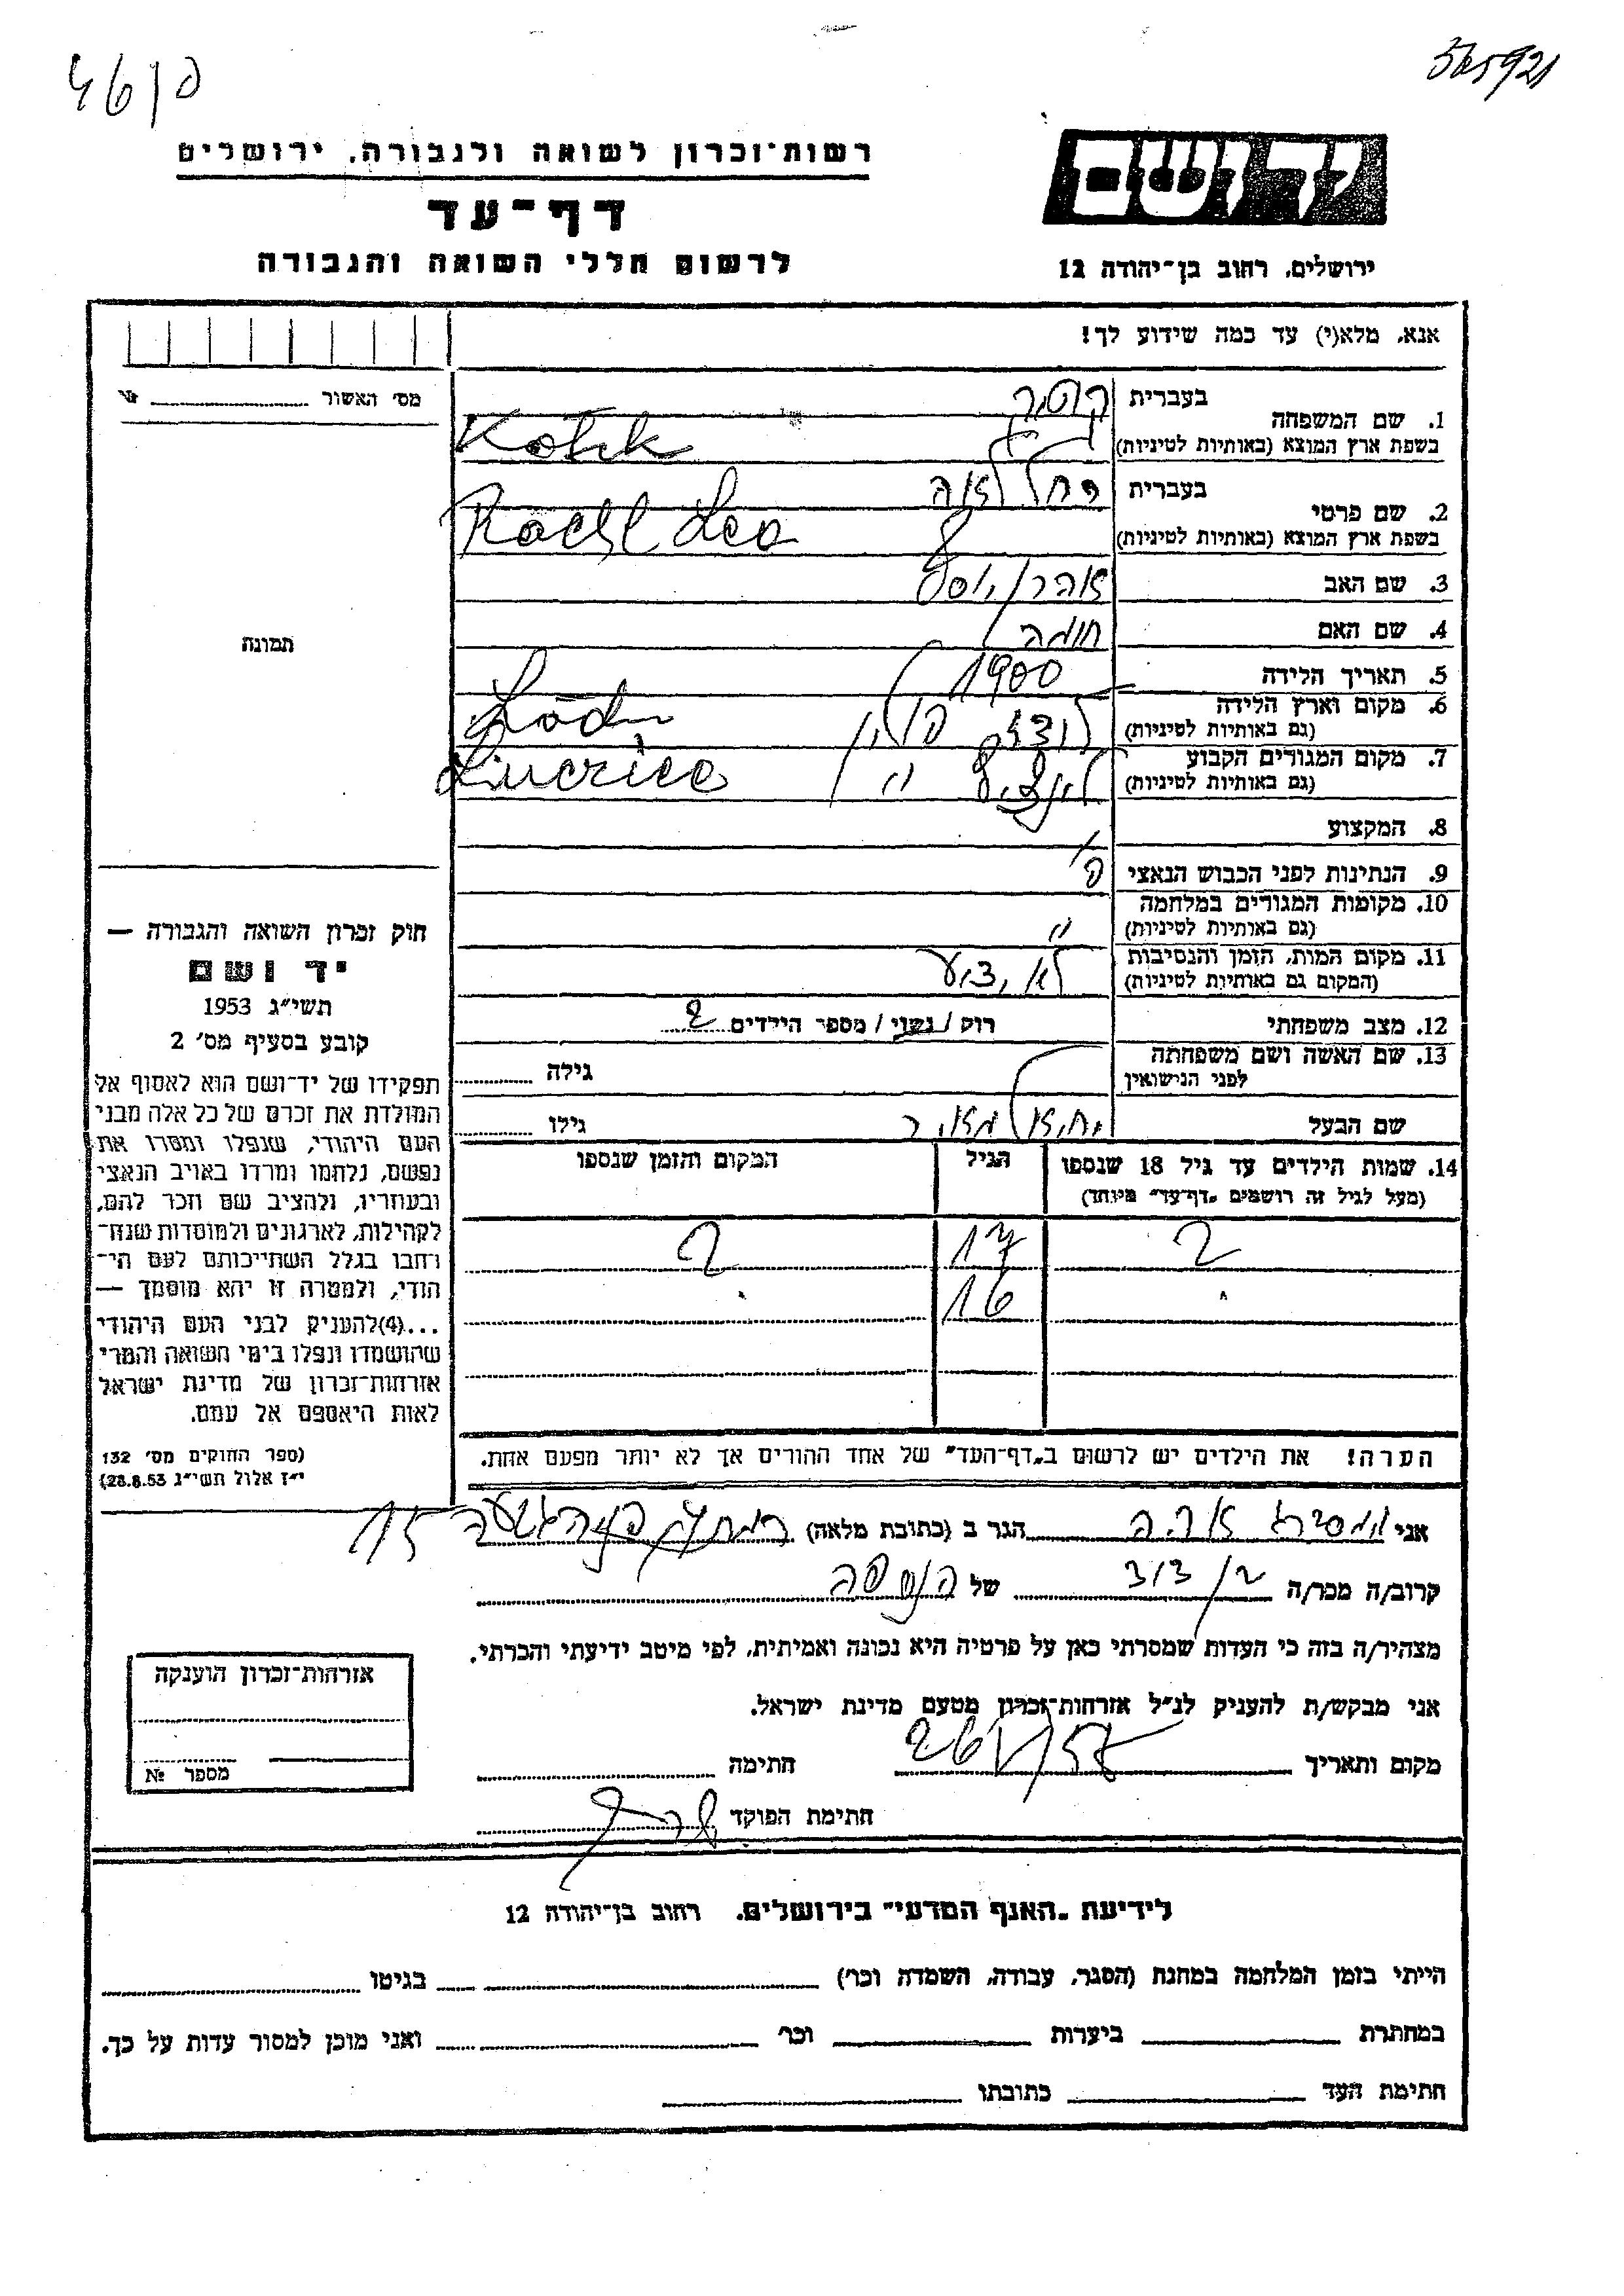 565921
רשות־זכרון לשואה ולגבורה, ירושלים
דף־עד
לרשום חללי השואה והגבורה
יד ושם
ירושלים, רחוב בן־יהודה 12
אנא, מלא(י) עד כמה שידוע לך!
מס׳ האשור № 
בעברית
1. שם המשפחה
בשפת ארץ המוצא (באותיות לטיניות) Kotek
בעברית רחל לאה
2. שם פרטי
בשפת ארץ המוצא (באותיות לטיניות) Rachel Lea
3. שם האב אהרן יוסף
4. שם האם
תמונה
5. תאריך הלידה 1900
6. מקום וארץ הלידה
(גם באותיות לטיניות) לודז׳
7. מקום המגורים הקבוע
(גם באותיות לטיניות)
8. המקצוע
9. הנתינות לפני הכבוש הנאצי פ׳
10. מקומות המגורים במלחמה
(גם באותיות לטיניות) "
11. מקום המות, הזמן והנסיבות
(המקום גם באותיות לטיניות) לא ידוע
12. מצב משפחתי רווק / נשוי / מספר הילדים 2
13. שם האשה ושם משפחתה
לפני הנישואין גילה
שם הבעל יחיאל מאיר גילו
14. שמות הילדים עד גיל 18 שנספו הגיל המקום והזמן שנספו
(מעל לגיל זה רושמים „דף־עד" מיוחד)
? 17 ?
16
הערה! את הילדים יש לרשום ב„דף־העד" של אחד ההורים אך לא יותר מפעם אחת.
חוק זכרון השואה והגבורה —
יד ושם
תשי״ג 1953
קובע בסעיף מס׳ 2
תפקידו של יד־ושם הוא לאסוף אל
המולדת את זכרם של כל אלה מבני
העם היהודי, שנפלו ומסרו את
נפשם, נלחמו ומרדו באויב הנאצי
ובעוזריו, ולהציב שם וזכר להם,
לקהילות, לארגונים ולמוסדות שנח־
רחבו בגלל השתייכותם לעם הי־
הודי, ולמטרה זו יהא מוסמך —
...(4)להעניק לבני העם היהודי
שהושמדו ונפלו בימי השואה והמרי
אזרחות־זכרון של מדינת ישראל
לאות היאספם אל עמם.
(ספר החוקים מס׳ 132
י״ז אלול תשי״ג 28.8.53)
אני הגר ב (כתובת מלאה)
קרוב/ה מכר/ה של הנספה
מצהיר/ה בזה כי העדות שמסרתי כאן על פרטיה היא נכונה ואמיתית, לפי מיטב ידיעתי והכרתי.
אני מבקש/ת להעניק לנ״ל אזרחות־זכרון מטעם מדינת ישראל.
מקום ותאריך חתימה
חתימת הפוקד
אזרחות־זכרון הוענקה
מספר №
לידיעת „האגף המדעי" בירושלים, רחוב בן־יהודה 12
הייתי בזמן המלחמה במחנה (הסגר, עבודה, השמדה וכר׳) בגיטו
במחתרת ביערות וכר׳ ואני מוכן למסור עדות על כך.
חתימת העד כתובתו